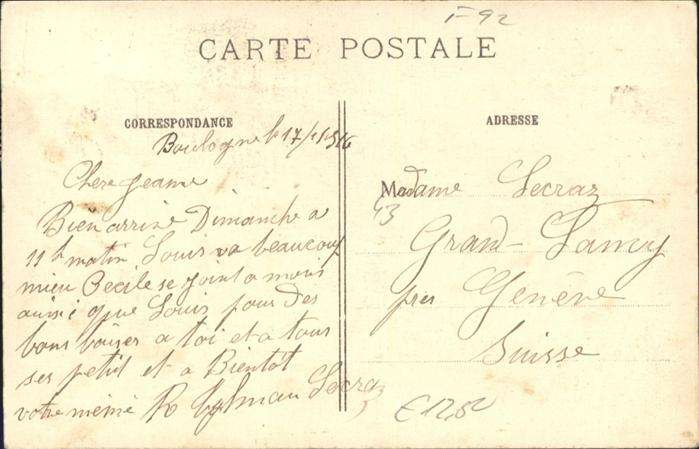 I-92
CARTE POSTALE
CORRESPONDANCE
ADRESSE
Boulogne le 17/
Chere Jeanne
Bien arrivé Dimanche a
11h matin Louis va beaucoup
mieu Cecile se joint a mois
ainsi que Louis pour des
bons baiser a toi et a tous
ses petit et a Bientot
votre mémé R Lecraz
Madame Lecraz
Grand-Lancy
pres Genève
Suisse
€12,50